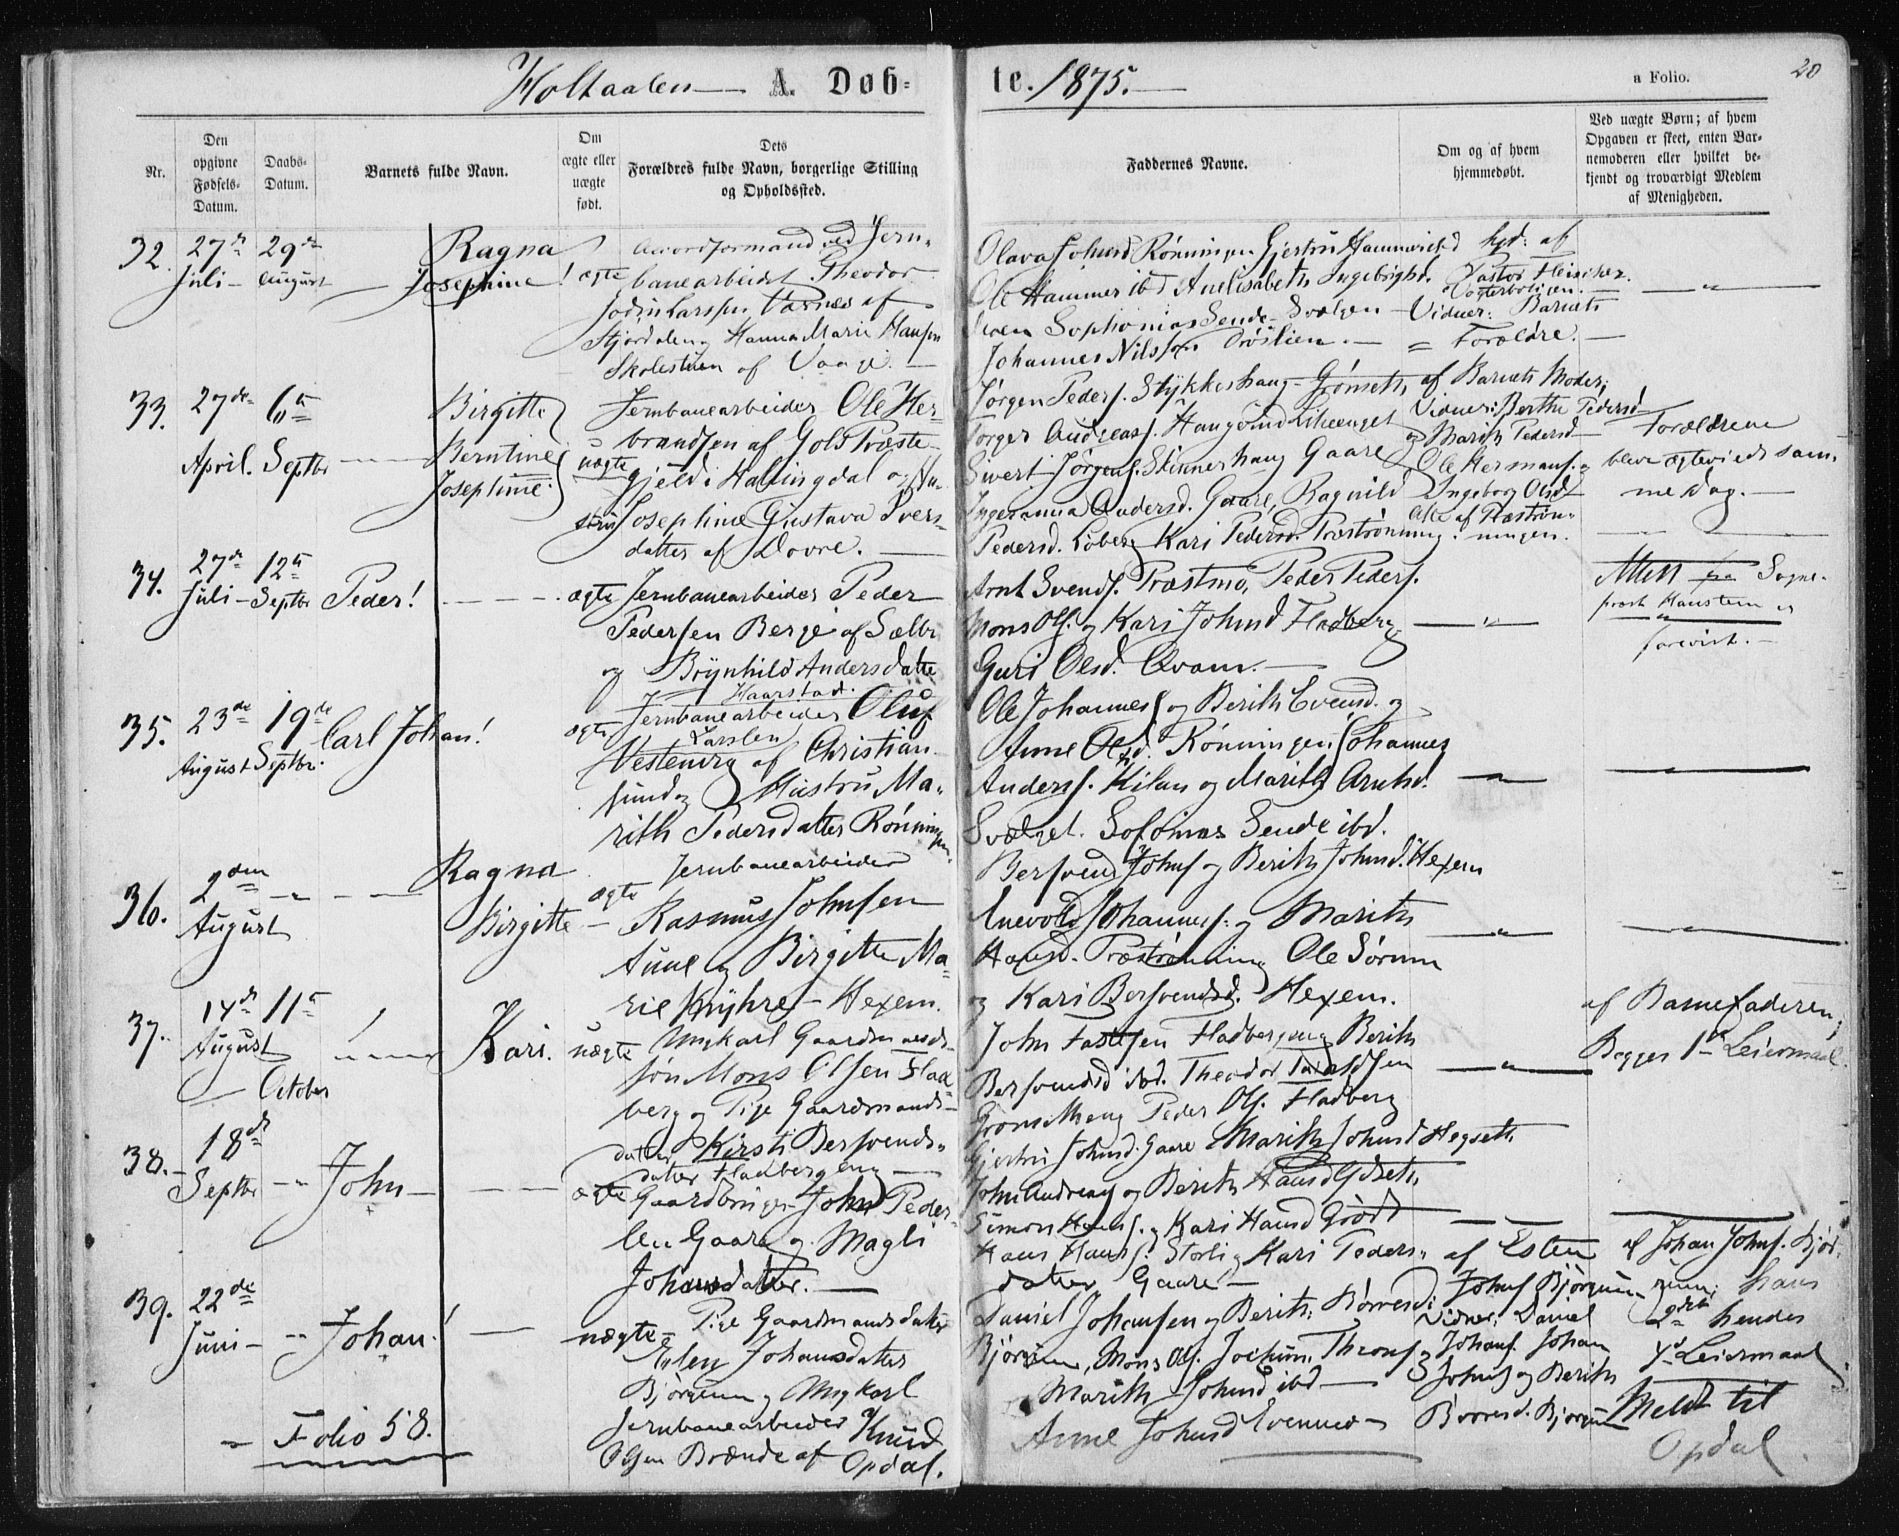 Holtaalen A. Døb-
te. 1875.
a Folio.
20
Nr.
Den opgivne Fødsels-Datum.
Daabs-Datum.
Barnets fulde Navn.
Om ægte eller uægte født.
Dets Forældres fulde Navn, borgerlige Stilling og Opholdssted.
Faddernes Navne.
Om og af hvem hjemmedøbt.
Ved uægte Børn; af hvem Opgaven er skeet, enten Barnemoderen eller hvilket bekjendt og troværdigt Medlem af Menigheden.
32. 27de Juli 29de August
Ragna
Josephine!
ægte
Accordformand ved Jern-
banearbeidet Theodor
Larssen Værnes af
Stjørdalen og Hanna Marie Hansen
Skolestuen af Vaage.
Olava Johnsd Rønningen Gjertru Hammer ibd
Ole Hammer ibd Anelisabeth Ingebrigtsd.
Sophonias Sende Svølgen
Johannes Nilssen Drøilien.
hjd: af
Pastor Fleischer.
Vidner: Barnets
Forældre.
33. 27de April. 6te Septbr
Birgitte
Berntine
Josephine.
uægte
Jernbanearbeider Ole Her-
brandsen af Gols Præste-
gjeld i Hallingdal og Hu-
stru Josephine Gustava Ivers-
datter af Dovre.
Jørgen Peders. Stykkeshaug Grønseth,
Torger Andreass.
Sivert Jørgens. Skinnerhaug Gaare
Ingeranna Andersd. Gaare, Ragnild
Pedersd. Løberg Kari Pedersd. Præstrønning.
af Barnets Moder;
Vidner: Berthe Pedersd
og Marith Pedersd
Ole Hermans. og
Ingeborg Olsd
Alle af Præstrøn-
ningen.
Forældrene
bleve ægteviede sam-
me Dag.
34. 27de Juli 12te Septbr
Peder!
ægte
Jernbanearbeider Peder
Pedersen Berge af Sælbo
og Brynhild Andersdatter
Haarstad.
Arnt Svends. Præstmo, Peder Peders.
Mons Ols. og Kari Johnsd Fladberg
Guri Olsd. Qvam.
Attest fra Sogne-
præst Hanstein er
forevist.
35. 23de August 19de Septbr.
Carl Johan!
ægte
Jernbanearbeider Oluf
Larssen
af Christian-
sund og Hustru Ma-
rith Pedersdatter Rønningen.
Ole Johannes. og Berith Evensd. og
Anne Olsd. Rønningen, Johannes
Anderss. Kilan og Marith Arntsd.
Svølget. Sende ibd.
36. 2den August
Ragna
Birgitte
ægte
Jernbanearbeider
Rasmus Johnsen
Aune og Birgitte Ma-
rie Myhre Hexem.
Bersvend Johns og Berith Johnsd. Hexem
Enevold Johannes. og Marith
Hansd. Præstrønning Ole Sørum
og Kari Bersvendsd. Hexem.
37. 14de August 11te October
Kari.
uægte
Ungkarl Gaardmands-
søn Mons Olsen Flad-
berg og Pige Gaardmands-
datter Kirsti Bersvends-
datter Fladbergeng
John Fladbergeng Berith
Bersvendsd ibd. Theodor
Peder Ols. Fladberg
af Barnefaderen;
Begges 1ste Leiermaal.
38. 18de Septbr
John
ægte
Gaardbruger John Peder-
sen Gaare og Magli
Johnsdatter.
Gjertru Johnsd. Gaare Marith Johnsd Hegseth,
John Andreas og Berith Hansd
Simon Hans. og Kari Hansd Grødt
Hans Hans. Storli og Kari Peders-
datter Gaare
39. 22de Juni
Johan!
uægte
Pige Gaardmandsdatter
Elen Johansdatter
Bjørgum og Ungkarl
Jernbanearbeider Knud
Olsen Brænde af Opdal.
Daniel Johansen og Berith
Bjørgum, Mons Ols. Jochum
Marith Johnsd ibd
Anne Johnsd
af Esten
Johns Bjørgum
Vidner: Daniel
Johans. Johan
Johns. og Berith
Bjørgum
af Johan Johns. Bjør-
gum; hans
2det hendes
1ste Leiermaal
Meldt til
Opdal
Folio 58.